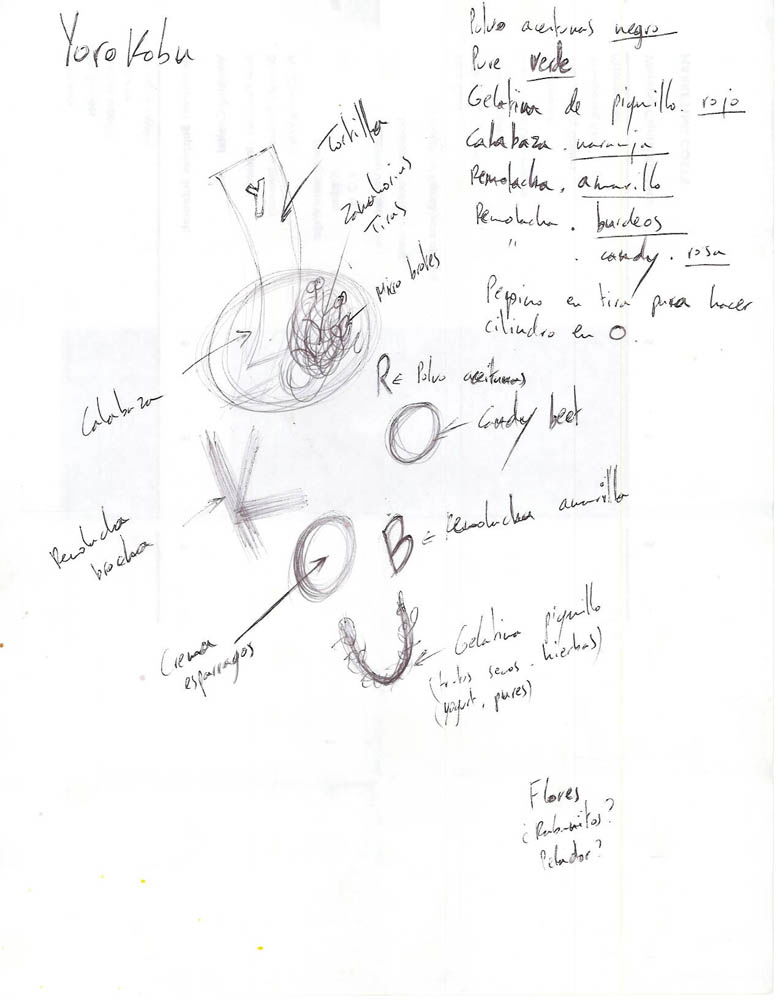 Yorokobu
Polvo aceitunas negro
Pure verde
Gelatina de piquillo. rojo
Calabaza. naranja
Remolacha. amarillo
Remolacha. burdeos
" . candy. rosa
Pepino en tira para hacer
cilindro en O.
Tortilla
Y
Zanahorias
Tiras
Micro brotes
Calabaza
R = Polvo aceitunas
O
Candy beet
K
Remolacha
brocha
O
B = Remolacha amarilla
Crema
esparragos
U
Gelatina piquillo
(frutos secos. hierbas)
(yogurt, pures)
Flores
¿Rabanitos?
Pelador?